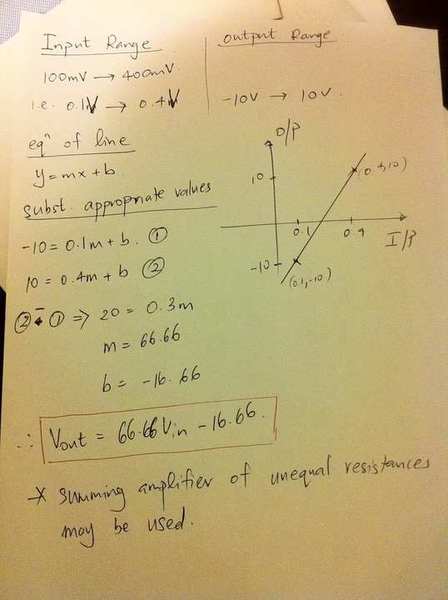 Input Range
100mV → 400mV
i.e. 0.1V → 0.4V
eqⁿ of line
y = mx + b
subst. appropriate values
-10 = 0.1m + b. ①
10 = 0.4m + b ②
② - ① ⇒ 20 = 0.3m
m = 66.66
b = -16.66
∴ Vout = 66.66Vin - 16.66.
* summing amplifier of unequal resistances
may be used.
Output Range
-10V → 10V.
O/P
10
(0.4,10)
0.1
0.4
I/P
-10
(0.1,-10)